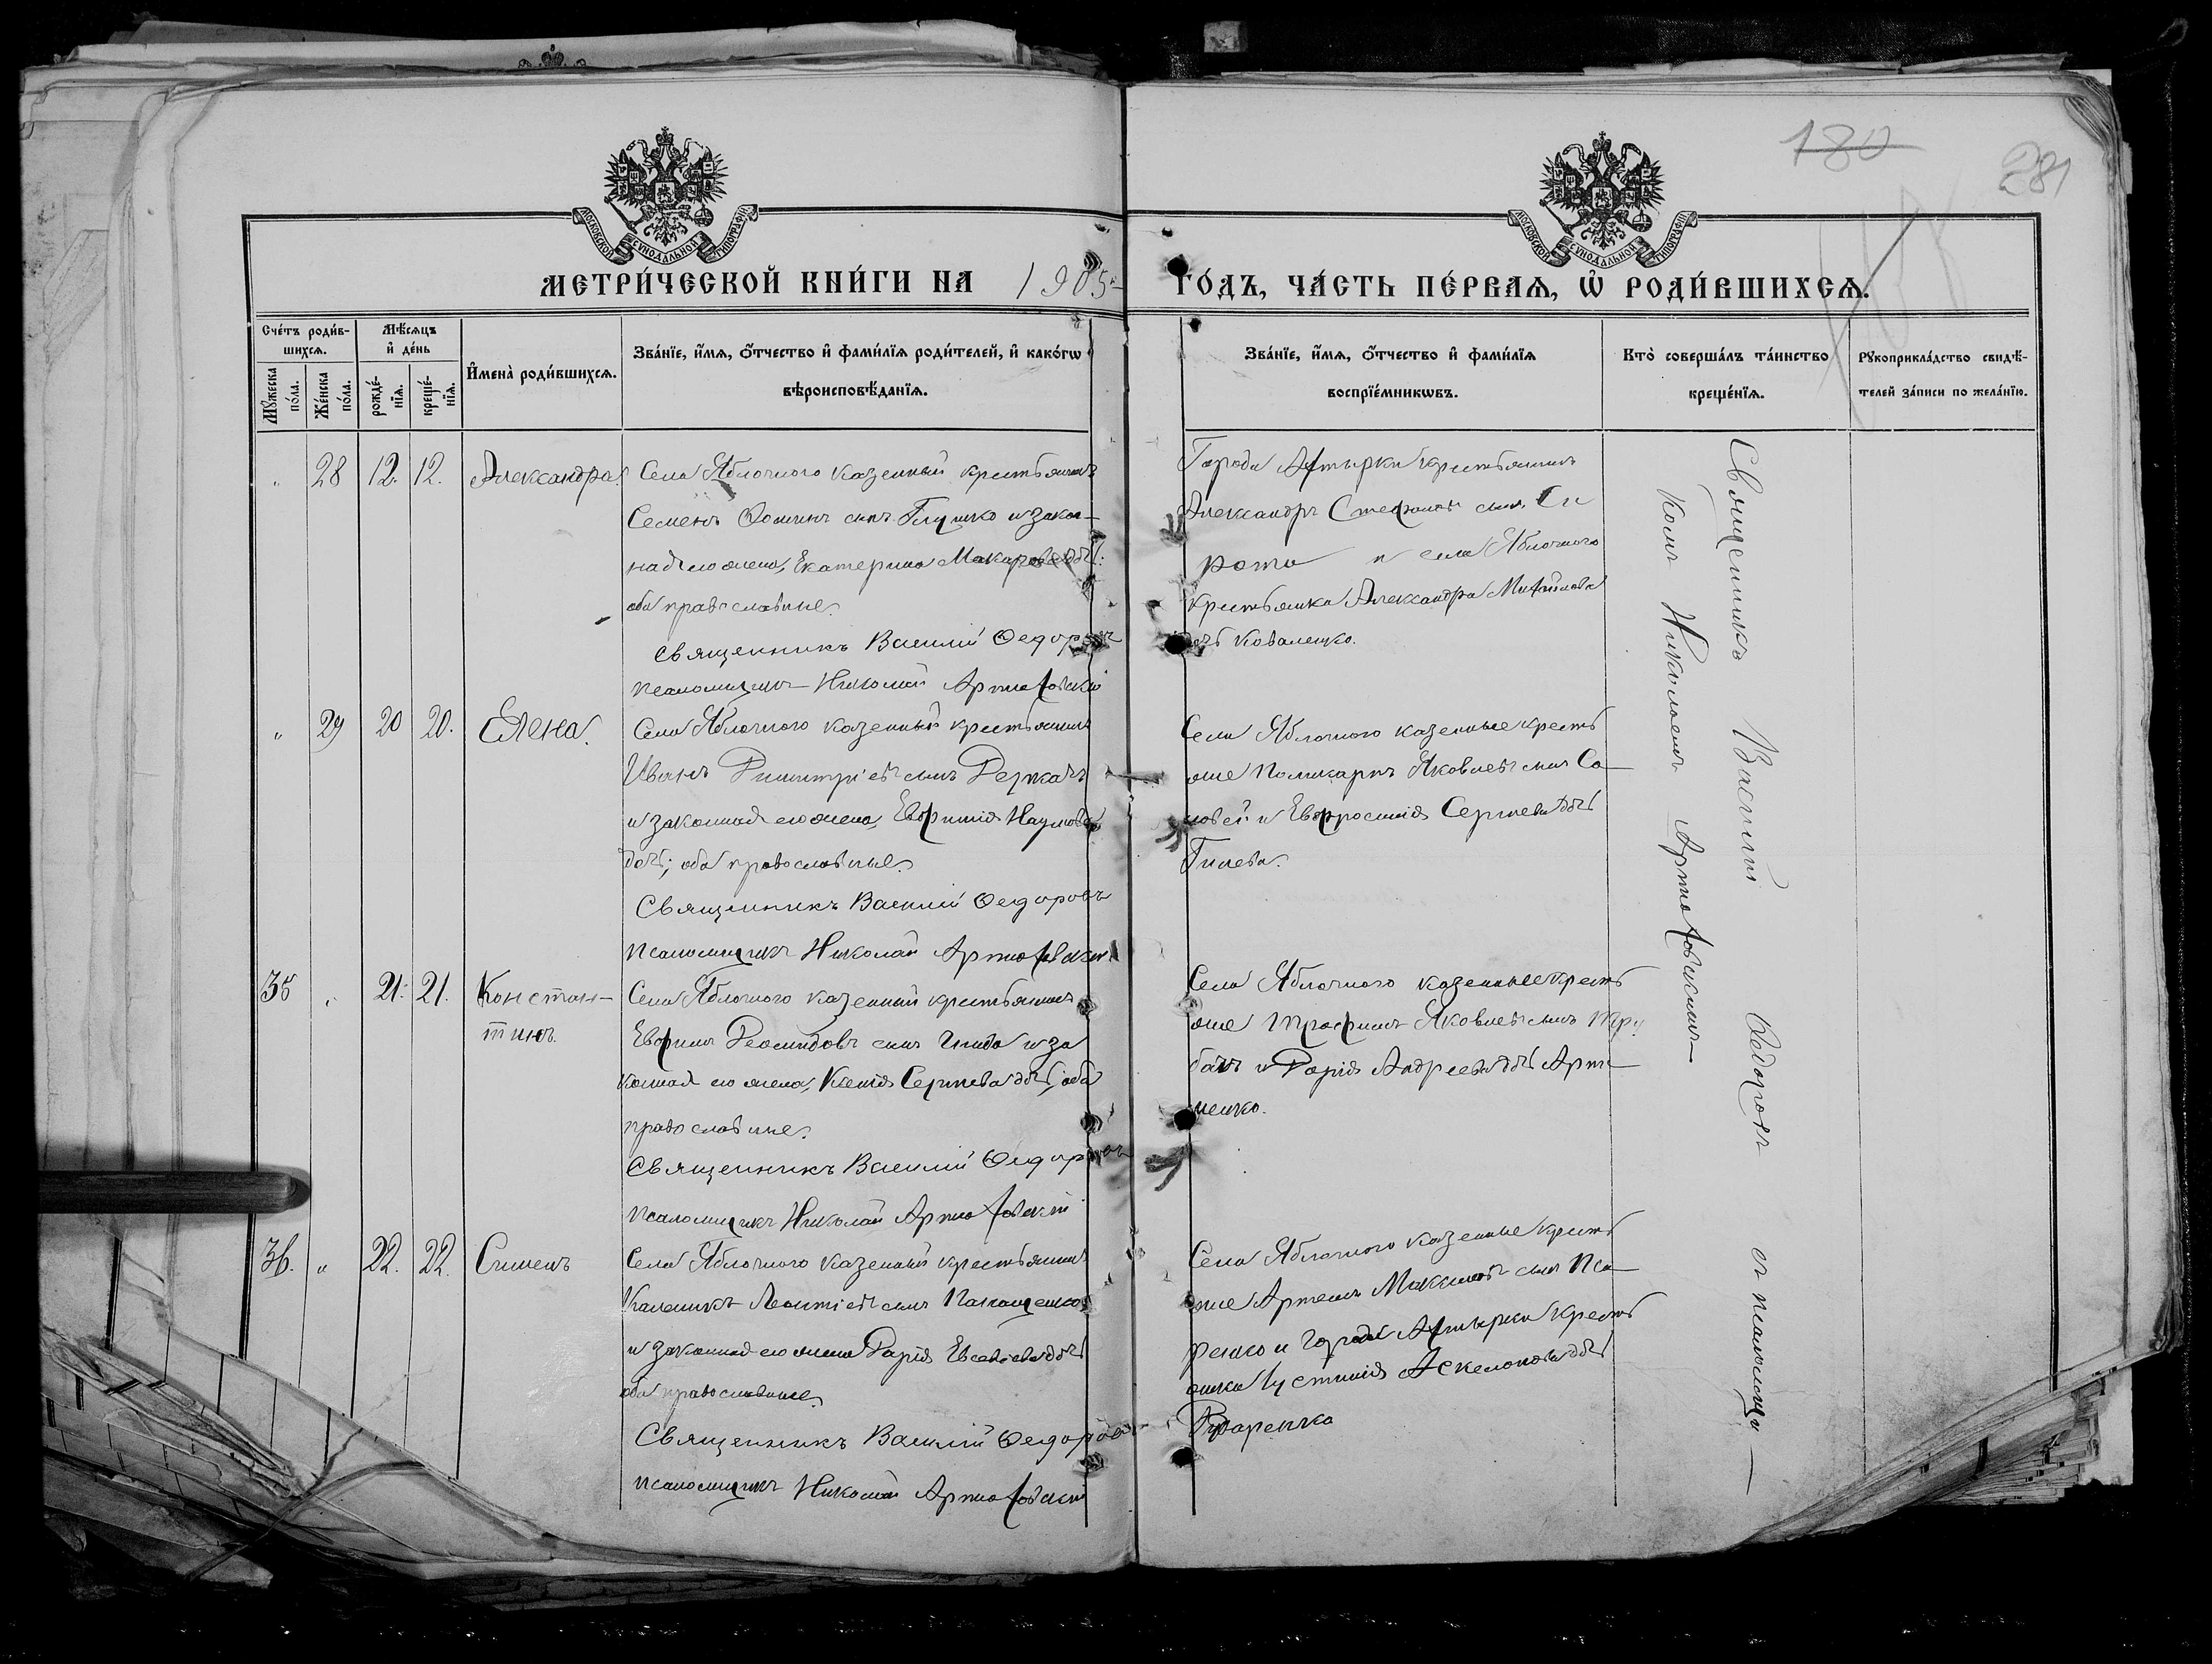 180
281
МОСКОВСКОЙ СѴНОДАЛЬНОЙ ТИПОГРАФІИ.
МОСКОВСКОЙ СѴНОДАЛЬНОЙ ТИПОГРАФІИ
МЕТРИ́ЧЕСКОЙ КНИ́ГИ НА 1905
ГО́ДЪ, ЧА́СТЬ ПЕ́РВАѦ, Ѿ РОДИ́ВШИХСѦ.
Сче́тъ роди́в-
шихсѧ.
Мꙋ́жеска по́ла.
Же́нска по́ла.
Мѣ́сѧцъ
и҆ де́нь
рожде́-
нїѧ.
креще́-
нїѧ.
И҆мена̀ роди́вшихсѧ.
Зва́нїе, и҆́мѧ, ѻ҆́тчество и҆ фами́лїѧ роди́телей, и҆ како́гѡ
вѣроисповѣ́данїѧ.
Зва́нїе, и҆́мѧ, ѻ҆́тчество и҆ фами́лїѧ
воспрїе́мникѡвъ.
Кто̀ соверша́лъ та́инство
креще́нїѧ.
Рꙋкоприкла́дство свидѣ́-
телей за́писи по жела́нїю.
" 28 12. 12. Александра.
Села Яблочного казенный крестьянинъ
Семенъ Фоминъ сынъ Глушко и закон-
ная его жена, Екатерина Макарова дочь:
оба православные.
Священникъ Василій Федоровъ
псаломщикъ Николай Артюховскій
Города Ахтырки крестьянинъ
Александръ Стефановъ сынъ Си
рота и села Яблочного
крестьянка Александра Михайлова
дочь Коваленко.
" 29 20 20. Елена.
Села Яблочного казенный крестьянинъ
Иванъ Димитріевъ сынъ Деркачъ
и законная его жена, Евфимія Наумова
дочь; оба православные.
Священникъ Василій Федоровъ
псаломщикъ Николай Артюховскій
Села Яблочного казенные кресть
яне Поликарпъ Яковлевъ сынъ Со
ловей и Евфросинія Сергиева дочь
35 " 21. 21. Констан-
тинъ.
Села Яблочного казенный крестьянинъ
Евфимъ сынъ и за
конная его жена, Ксенія Сергиева дочь, оба
православные.
Священникъ Василій Федоровъ
псаломщикъ Николай Артюховскій
Села Яблочного казенные кресть
яне Трофимъ Яковлевъ сынъ
и Дарія Андреева дочь
36. " 22. 22. Симеонъ
Села Яблочного казенный крестьянинъ
Каленикъ Леонтіевъ сынъ
и законная его жена Дарія Евсевіева дочь
оба православные.
Священникъ Василій Федоровъ
псаломщикъ Николай Артюховскій
Села Яблочного казенные кресть
яне Артемъ Максимовъ сынъ
и города Ахтырки кресть
янка Іустинія дочь
Священникъ Василій Федоровъ съ псаломщи-
комъ Николаемъ Артюховскимъ